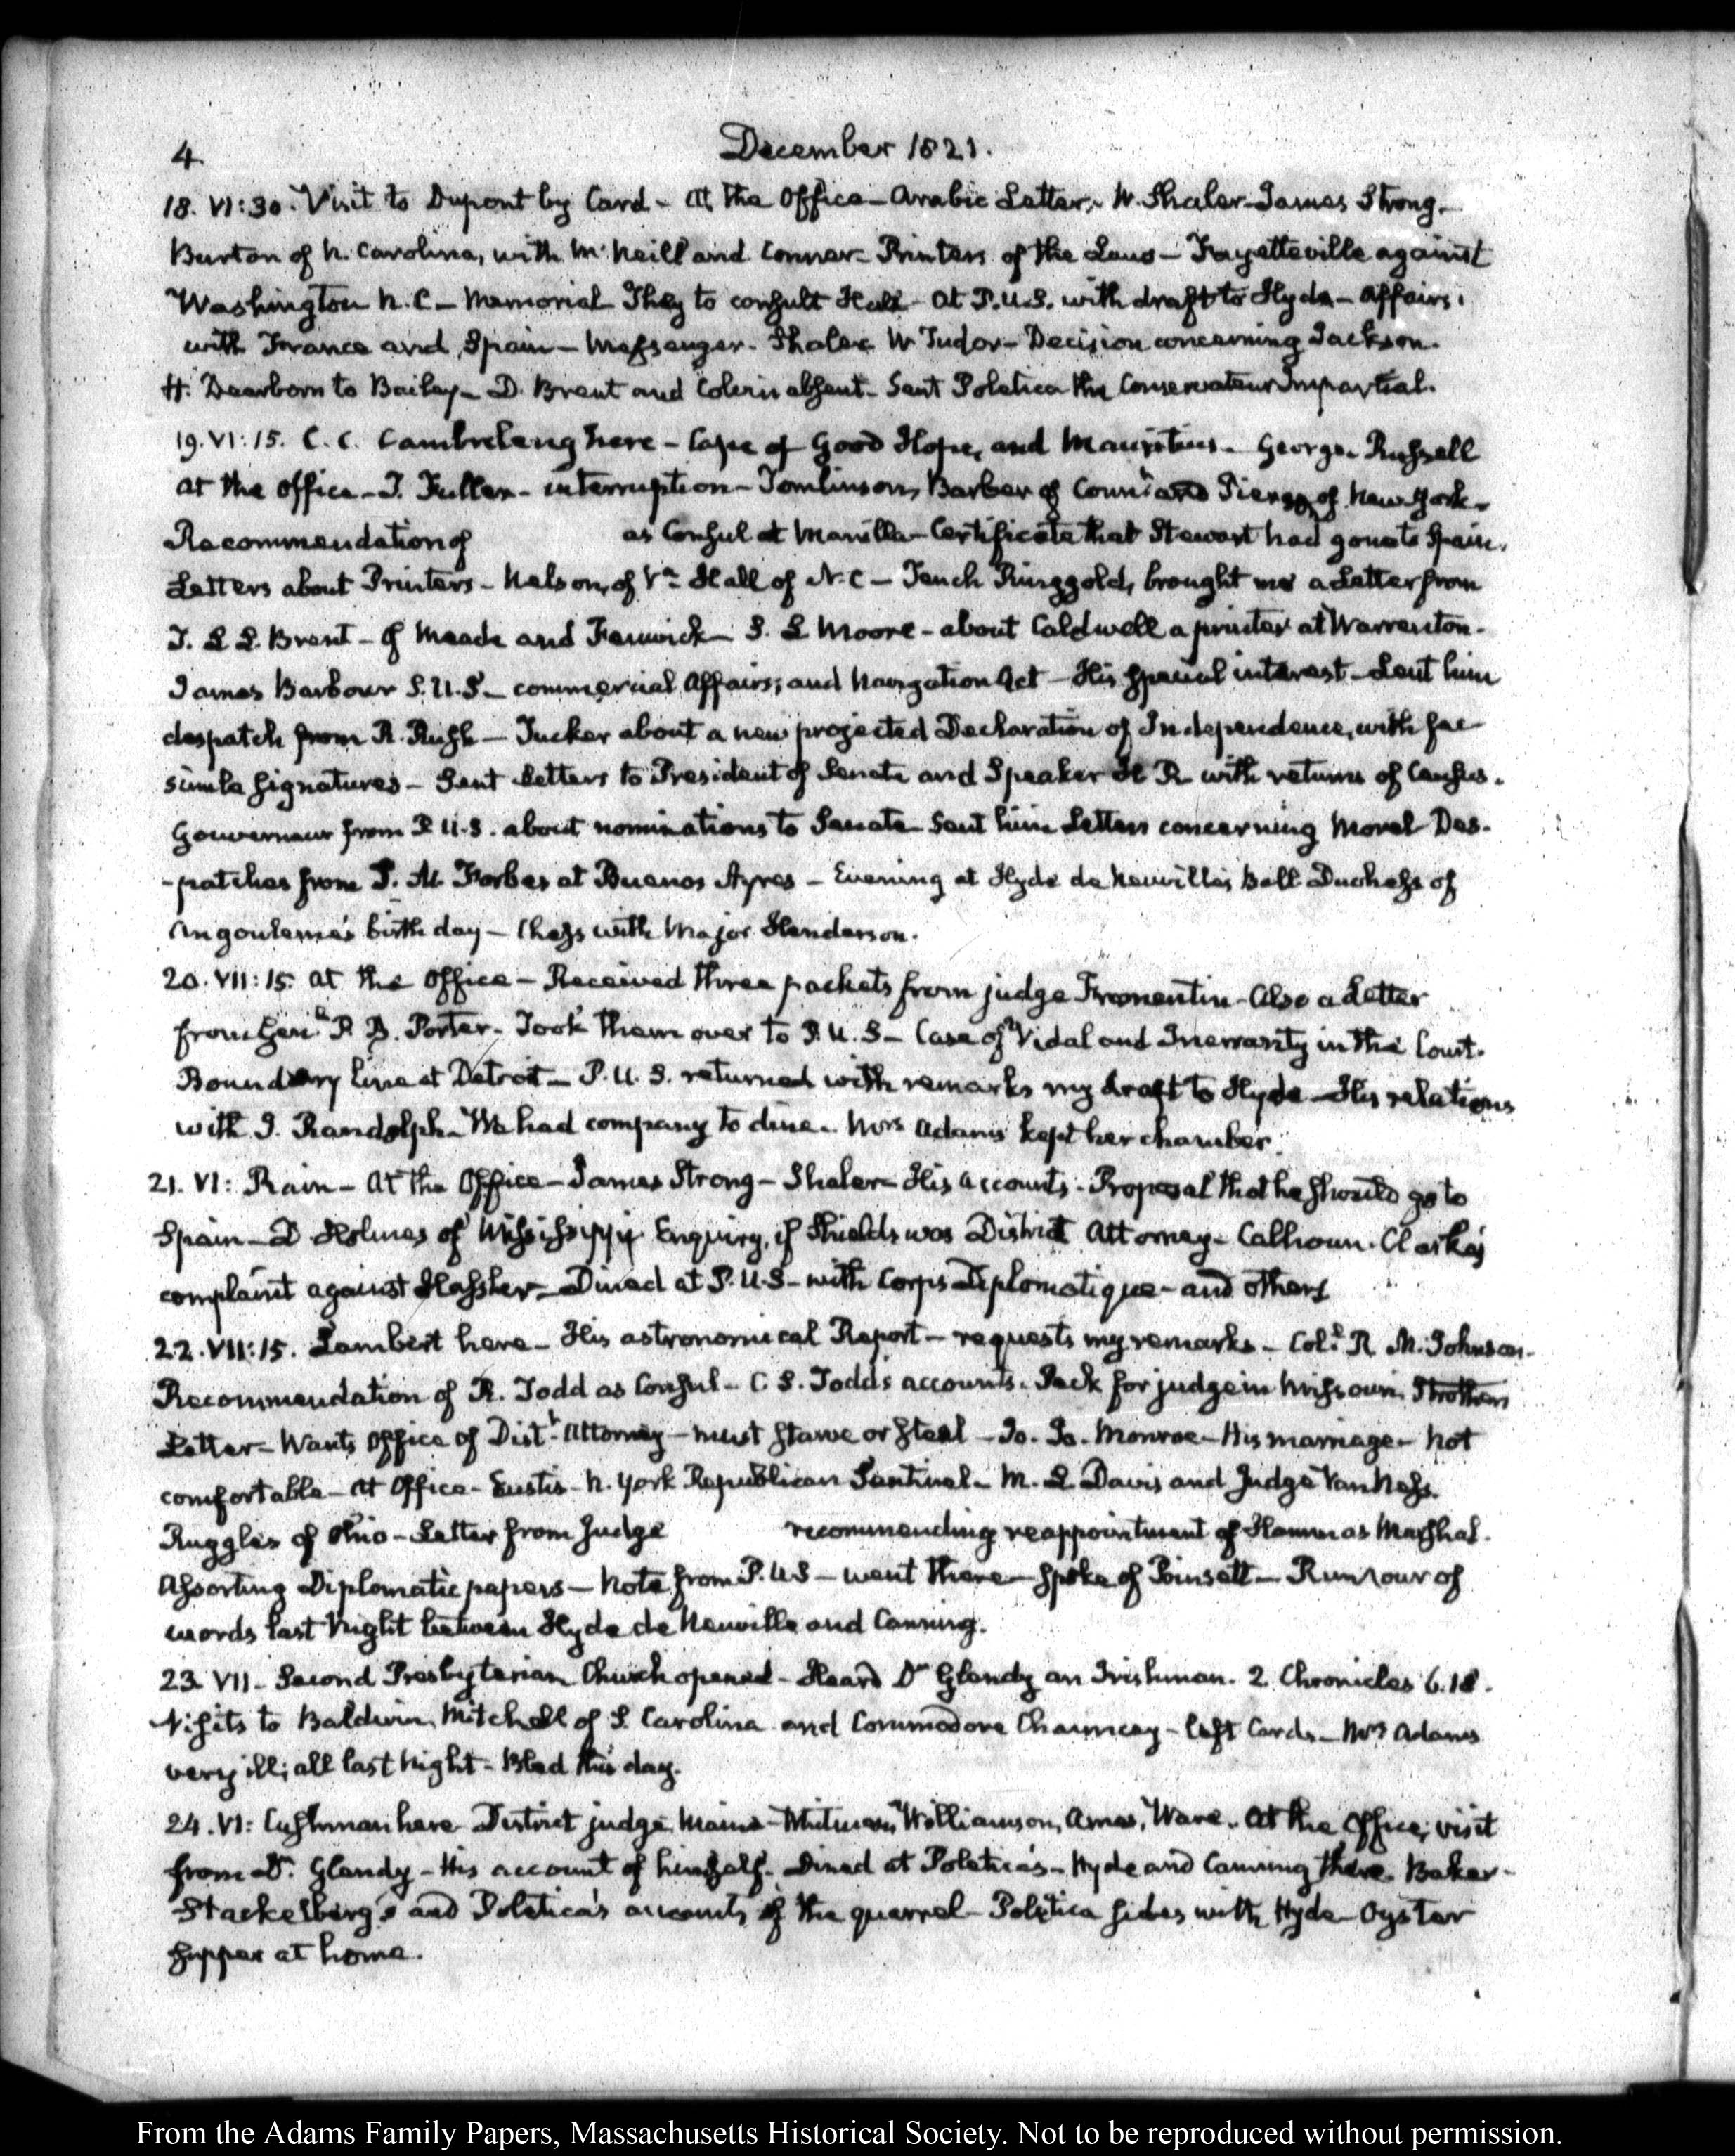 4
December 1821.
18. VI:30. Visit to Dupont by Card - At the Office - Arabic Letter. W. Shaler - James Strong.
Burton of N. Carolina, with McNeill and Conner - Printers of the Laws - Fayetteville against
Washington N.C - Memorial They to consult Hall - At P.U.S. with draft to Hyde - Affairs
with France and Spain - Messenger. Shaler W Tudor - Decision concerning Jackson.
H. Dearborn to Bailey - D. Brent and Colvin absent - Sent Poletica the Conservateur Impartial.
19. VI:15. C. C. Cambreleng here - Cape of Good Hope, and Mauritius - George Russell
at the office - T. Fuller - interruption - Tomlinson, Barber of Connt and Pierson of New York -
Recommendation of as Consul at Manilla - Certificate that Stewart had gone to Spain.
Letters about Printers - Nelson, of Va Hall of N.C - Tench Ringgold, brought me a Letter from
T. L L. Brent - of Meade and Fenwick - S. L Moore - about Caldwell a printer at Warrenton.
James Barbour S.U.S - commercial Affairs; and Navigation Act - His special interest - Lent him
despatch from R. Rush - Tucker about a new projected Declaration of Independence, with fac
simile signatures - Sent Letters to President of Senate and Speaker H R with returns of Census.
Gouverneur from P.U.S. about nominations to Senate Sent him Letters concerning Morel Des-
-patches from J. M. Forbes at Buenos Ayres - Evening at Hyde de Neuville's Ball Duchess of
Angouleme's birth day - Chess with Major Henderson.
20. VII:15. At the Office - Received three packets from judge Fromentin - Also a Letter
from Genl P. B. Porter. Took them over to P.U.S - Case of Vidal and Inerarity in the Court.
Boundary line at Detroit - P.U.S. returned with remarks my draft to Hyde - His relations
with J. Randolph - We had company to dine. Mrs Adams kept her chamber.
21. VI: Rain - At the Office - James Strong - Shaler - His accounts. Proposal that he should go to
Spain - D Holmes of Mississippi Enquiry, if Shields was District Attorney - Calhoun. Clarke's
complaint against Hassler - Dined at P.U.S - with Corps Diplomatique - and others
22. VII:15. Lambert here - His astronomical Report - requests my remarks - Coll R M. Johnson -
Recommendation of R. Todd as Consul - C. S. Todd's accounts. Peck for judge in Missouri Strother's
Letter - Wants Office of Distt Attorney - must starve or steal - Jo. Jo. Monroe - His marriage - Not
comfortable - At Office - Eustis - N. York Republican Sentinel - M. L Davis and Judge Van Ness.
Ruggles of Ohio - Letter from Judge recommending reappointment of Hamm as Marshal.
Assorting Diplomatic papers - Note from P.U.S - went there - Spoke of Poinsett - Rumour of
words last Night between Hyde de Neuville and Canning.
23. VII - Second Presbyterian Church opened - Heard Dr Glendy an Irishman. 2. Chronicles 6.18.
Visits to Baldwin, Mitchell of S. Carolina and Commodore Chauncey - left Cards - Mrs Adams
very ill; all last Night - Bled this day.
24. VI: Cushman here District judge, Maine - Whitman, Williamson, Ames, Ware. At the Office; visit
from Dr Glendy - His account of himself. Dined at Poletica's - Hyde and Canning there. Baker -
Stackelberg's and Poletica's accounts of the quarrel - Poletica sides with Hyde - Oyster
supper at home.
From the Adams Family Papers, Massachusetts Historical Society. Not to be reproduced without permission.